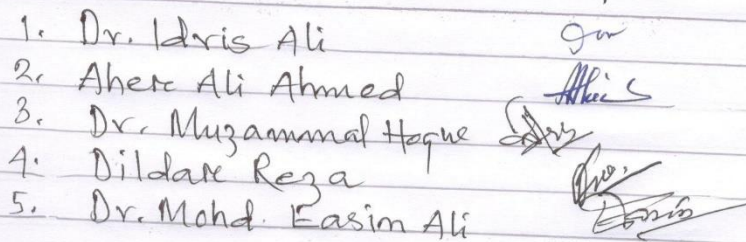 1. Dr. Idris Ali
2. Aher Ali Ahmed
3. Dr. Muzammal Hoque
4. Dildar Reza
5. Dr. Mohd. Easim Ali